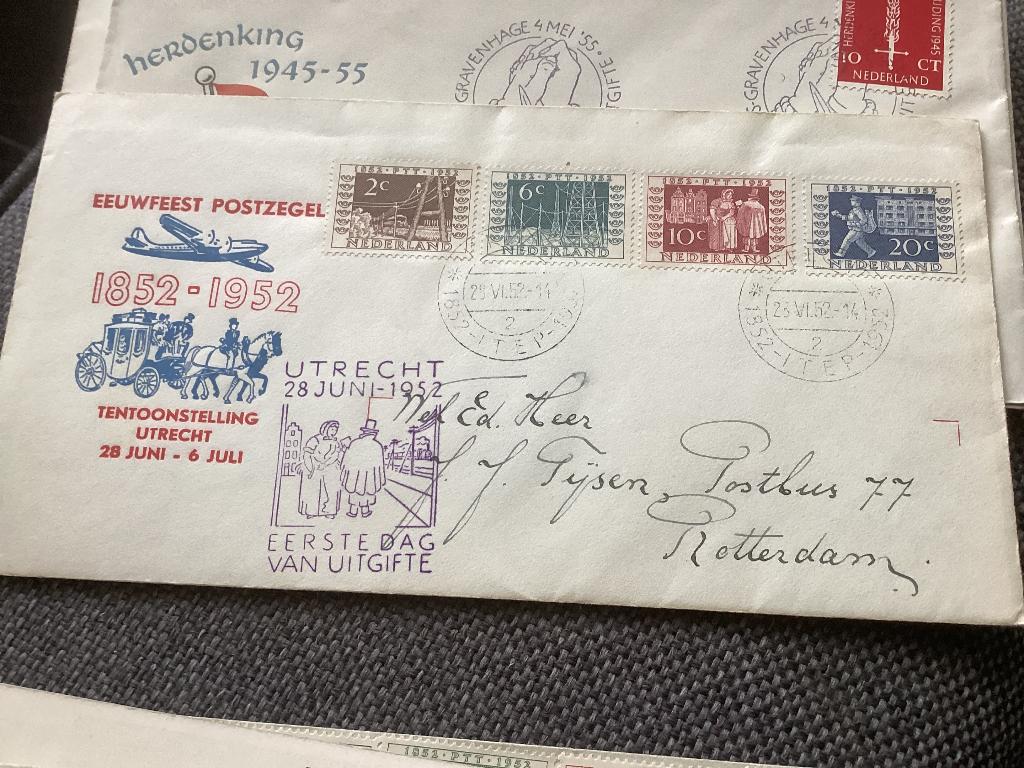 herdenking
1945-55
GRAVENHAGE 4 MEI '55
GRAVENHAGE 4
1945
10 CT
NEDERLAND
EEUWFEEST POSTZEGEL
1852-1952
TENTOONSTELLING
UTRECHT
28 JUNI - 6 JULI
1852·PTT·1952
2c
NEDERLAND
1852·PTT·1952
6c
NEDERLAND
1852·PTT·1952
10c
NEDERLAND
1852·PTT·1952
20c
NEDERLAND
28 VI.52.-14
2
1852-ITEP-1952
28 VI.52.-14
2
1852-ITEP-1952
UTRECHT
28 JUNI-1952
EERSTE DAG
VAN UITGIFTE
Ed. Heer
J. Tijsen, Postbus 77
Rotterdam.
1852·PTT·1952